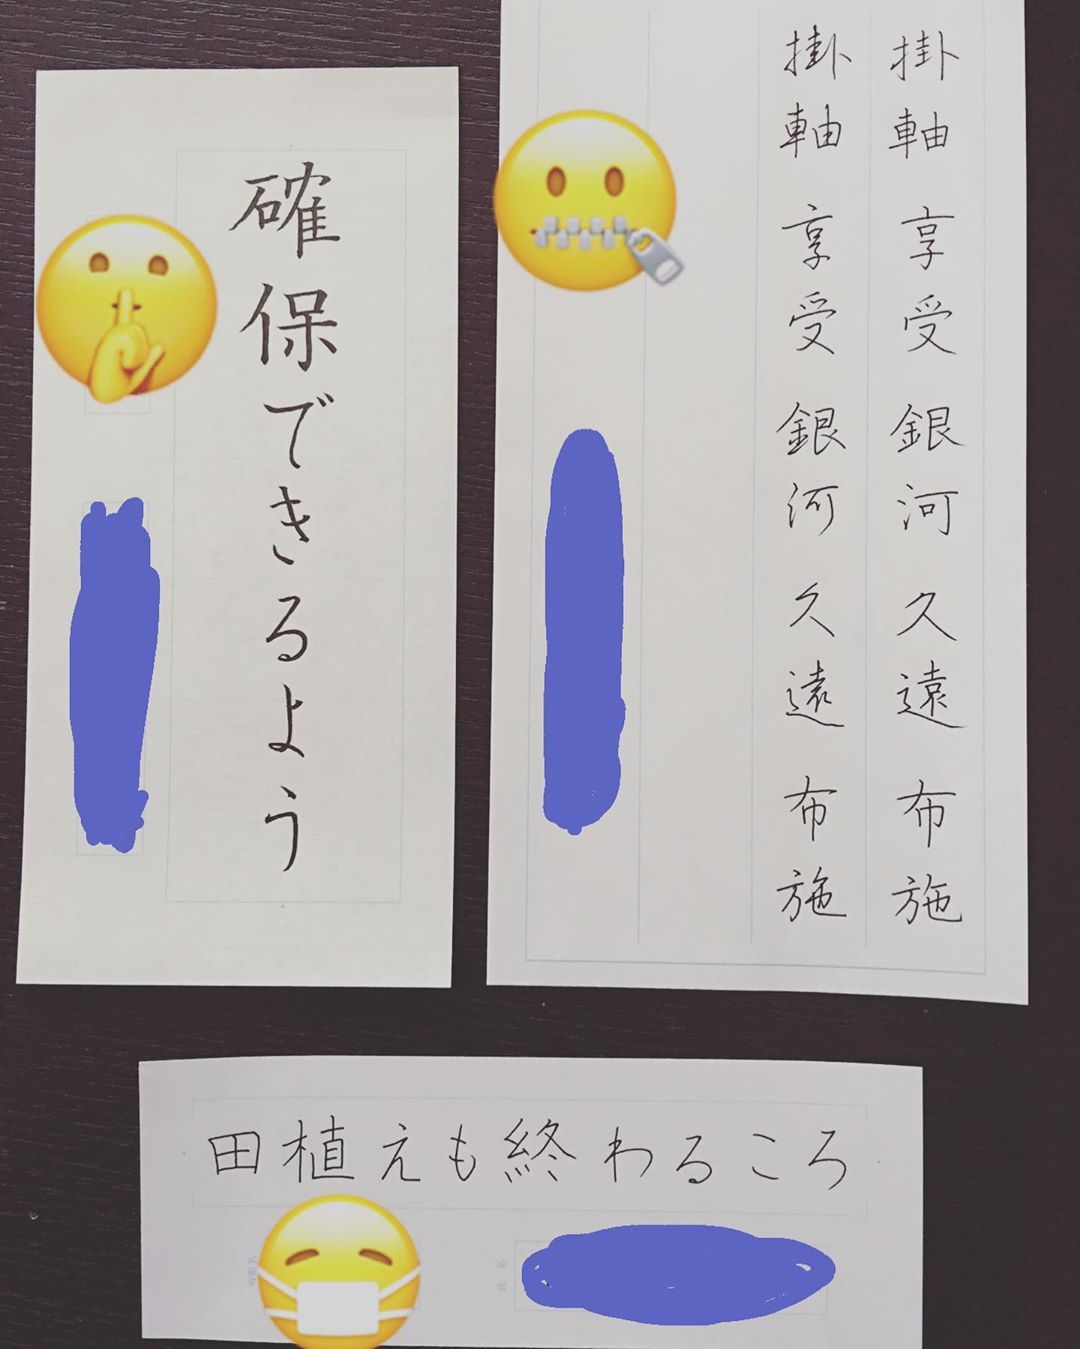 確保できるよう
掛軸 享受 銀河 久遠 布施
掛軸 享受 銀河 久遠 布施
田植えも終わるころ
氏名